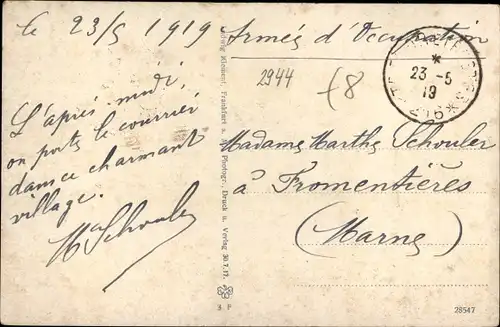 le 23/5 1919 Armés d'Occupation
2944
L'après-midi,
on porte le courrier
dans ce charmant
village.
Mme Schouler
Madame Marthe Schouler
à Fromentières
(Marne)
23-5
19
216
Ludwig Klement, Frankfurt a. M. Photogr., Druck u. Verlag 30.7.17.
3 F
28547